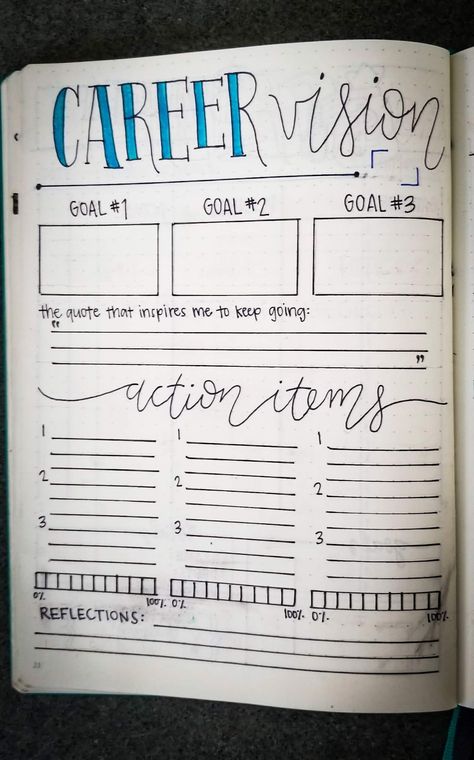 CAREER vision
GOAL #1 GOAL #2 GOAL #3
the quote that inspires me to keep going:
"
"
action items
1 1 1
2 2 2
3 3 3
0% 100% 0% 100% 0% 100%
REFLECTIONS: